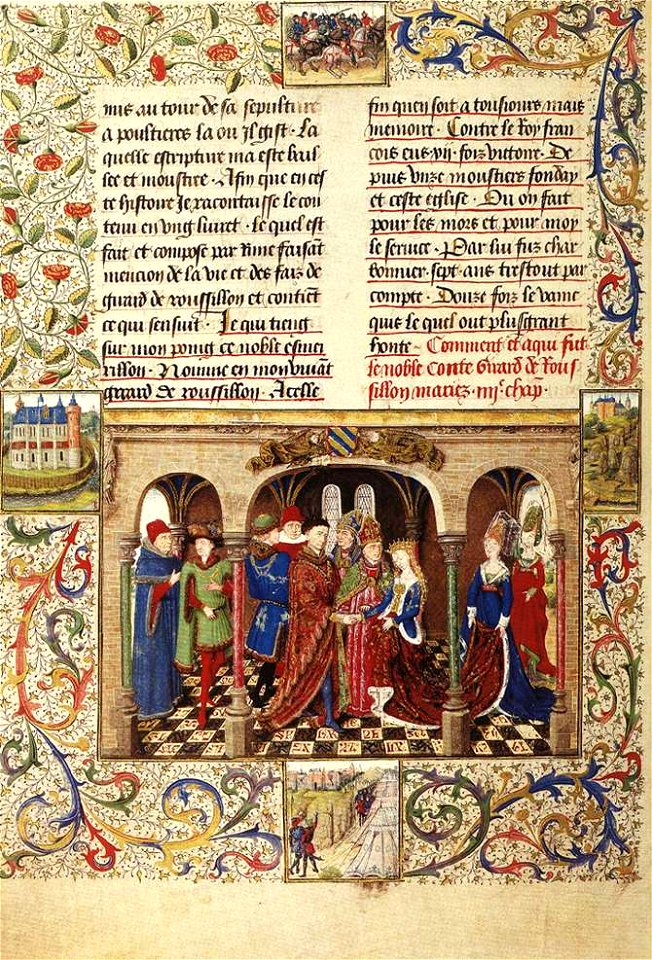 mis au tour de sa sepulture
a poultieres la ou il gist. La
quelle escripture ma este bail
lee et moustree. Afin que en ces
te histoire Je racontaisse le con
tenu en ung liuret. Le quel est
fait et compose par Rime faisant
mencion de la vie et des faiz de
guard de roussillon et contient
ce qui sensuit. Je qui tieng
sur mon poing ce noble esmer
rillon. Nomme en mon viuant
gerard de roussillon. A celle
fin quen soit a tousiours mais
memoire. Contre le Roy fran
cois eus .vij. foiz victoire. De
puis vnze moustiers fonday
et ceste eglise. Ou on fait
pour les mors et pour moy
le seruice. Par lui fuz char
bonnier sept ans trestout par
compte. Douze foiz le vain
quis le quel out plus grant
honte ~ Comment et a qui fut
le noble Conte Girard de Rous
sillon mariez. iiij.e chap.